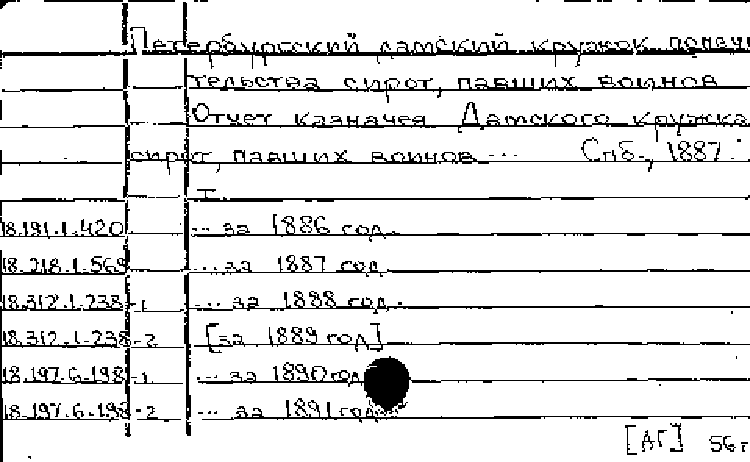 Петербургский дамский кружок попечи
тельства сирот, павших воинов
Отчет казначея Дамского кружка
сирот, павших воинов ... Спб., 1887.
18.191.1.420 ... за 1886 год.
18.218.1.569 ... за 1887 год
18.312.1.238-1 ... за 1888 год.
18.312.1-238-2 [за 1889 год]
18.197.6-198-1 ... за 1890 год
18.197.6-198-2 ... за 1891 год
[АГ] 56г